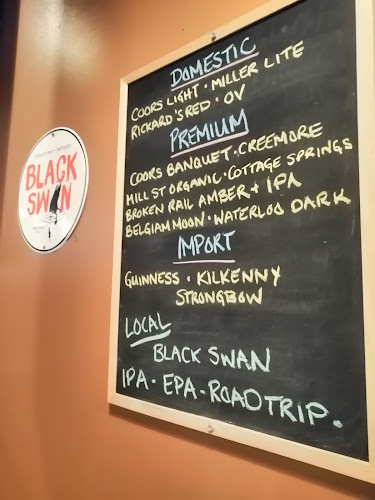 BLACK
SWAN
DOMESTIC
COORS LIGHT · MILLER LITE
RICKARD'S RED · OV
PREMIUM
COORS BANQUET · CREEMORE
MILL ST ORGANIC · COTTAGE SPRINGS
BROKEN RAIL AMBER + IPA
BELGIAN MOON · WATERLOO DARK
IMPORT
GUINNESS · KILKENNY
STRONGBOW
LOCAL
BLACK SWAN
IPA · EPA - ROADTRIP.